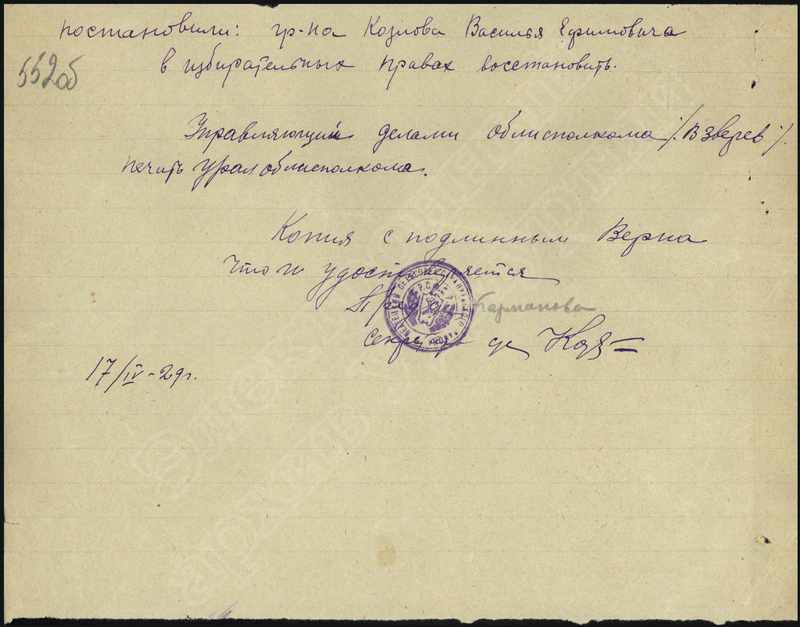 постановили: гр-на Козлова Василья Ефимовича
552об
в избирательных правах восстановить.
Управляющий делами облисполкома /:В Зверев:/.
печать Уралоблисполкома.
Копия с подлинным Верна
что и удостоверяется
Карманова
Секретарь
17/IV-29г.